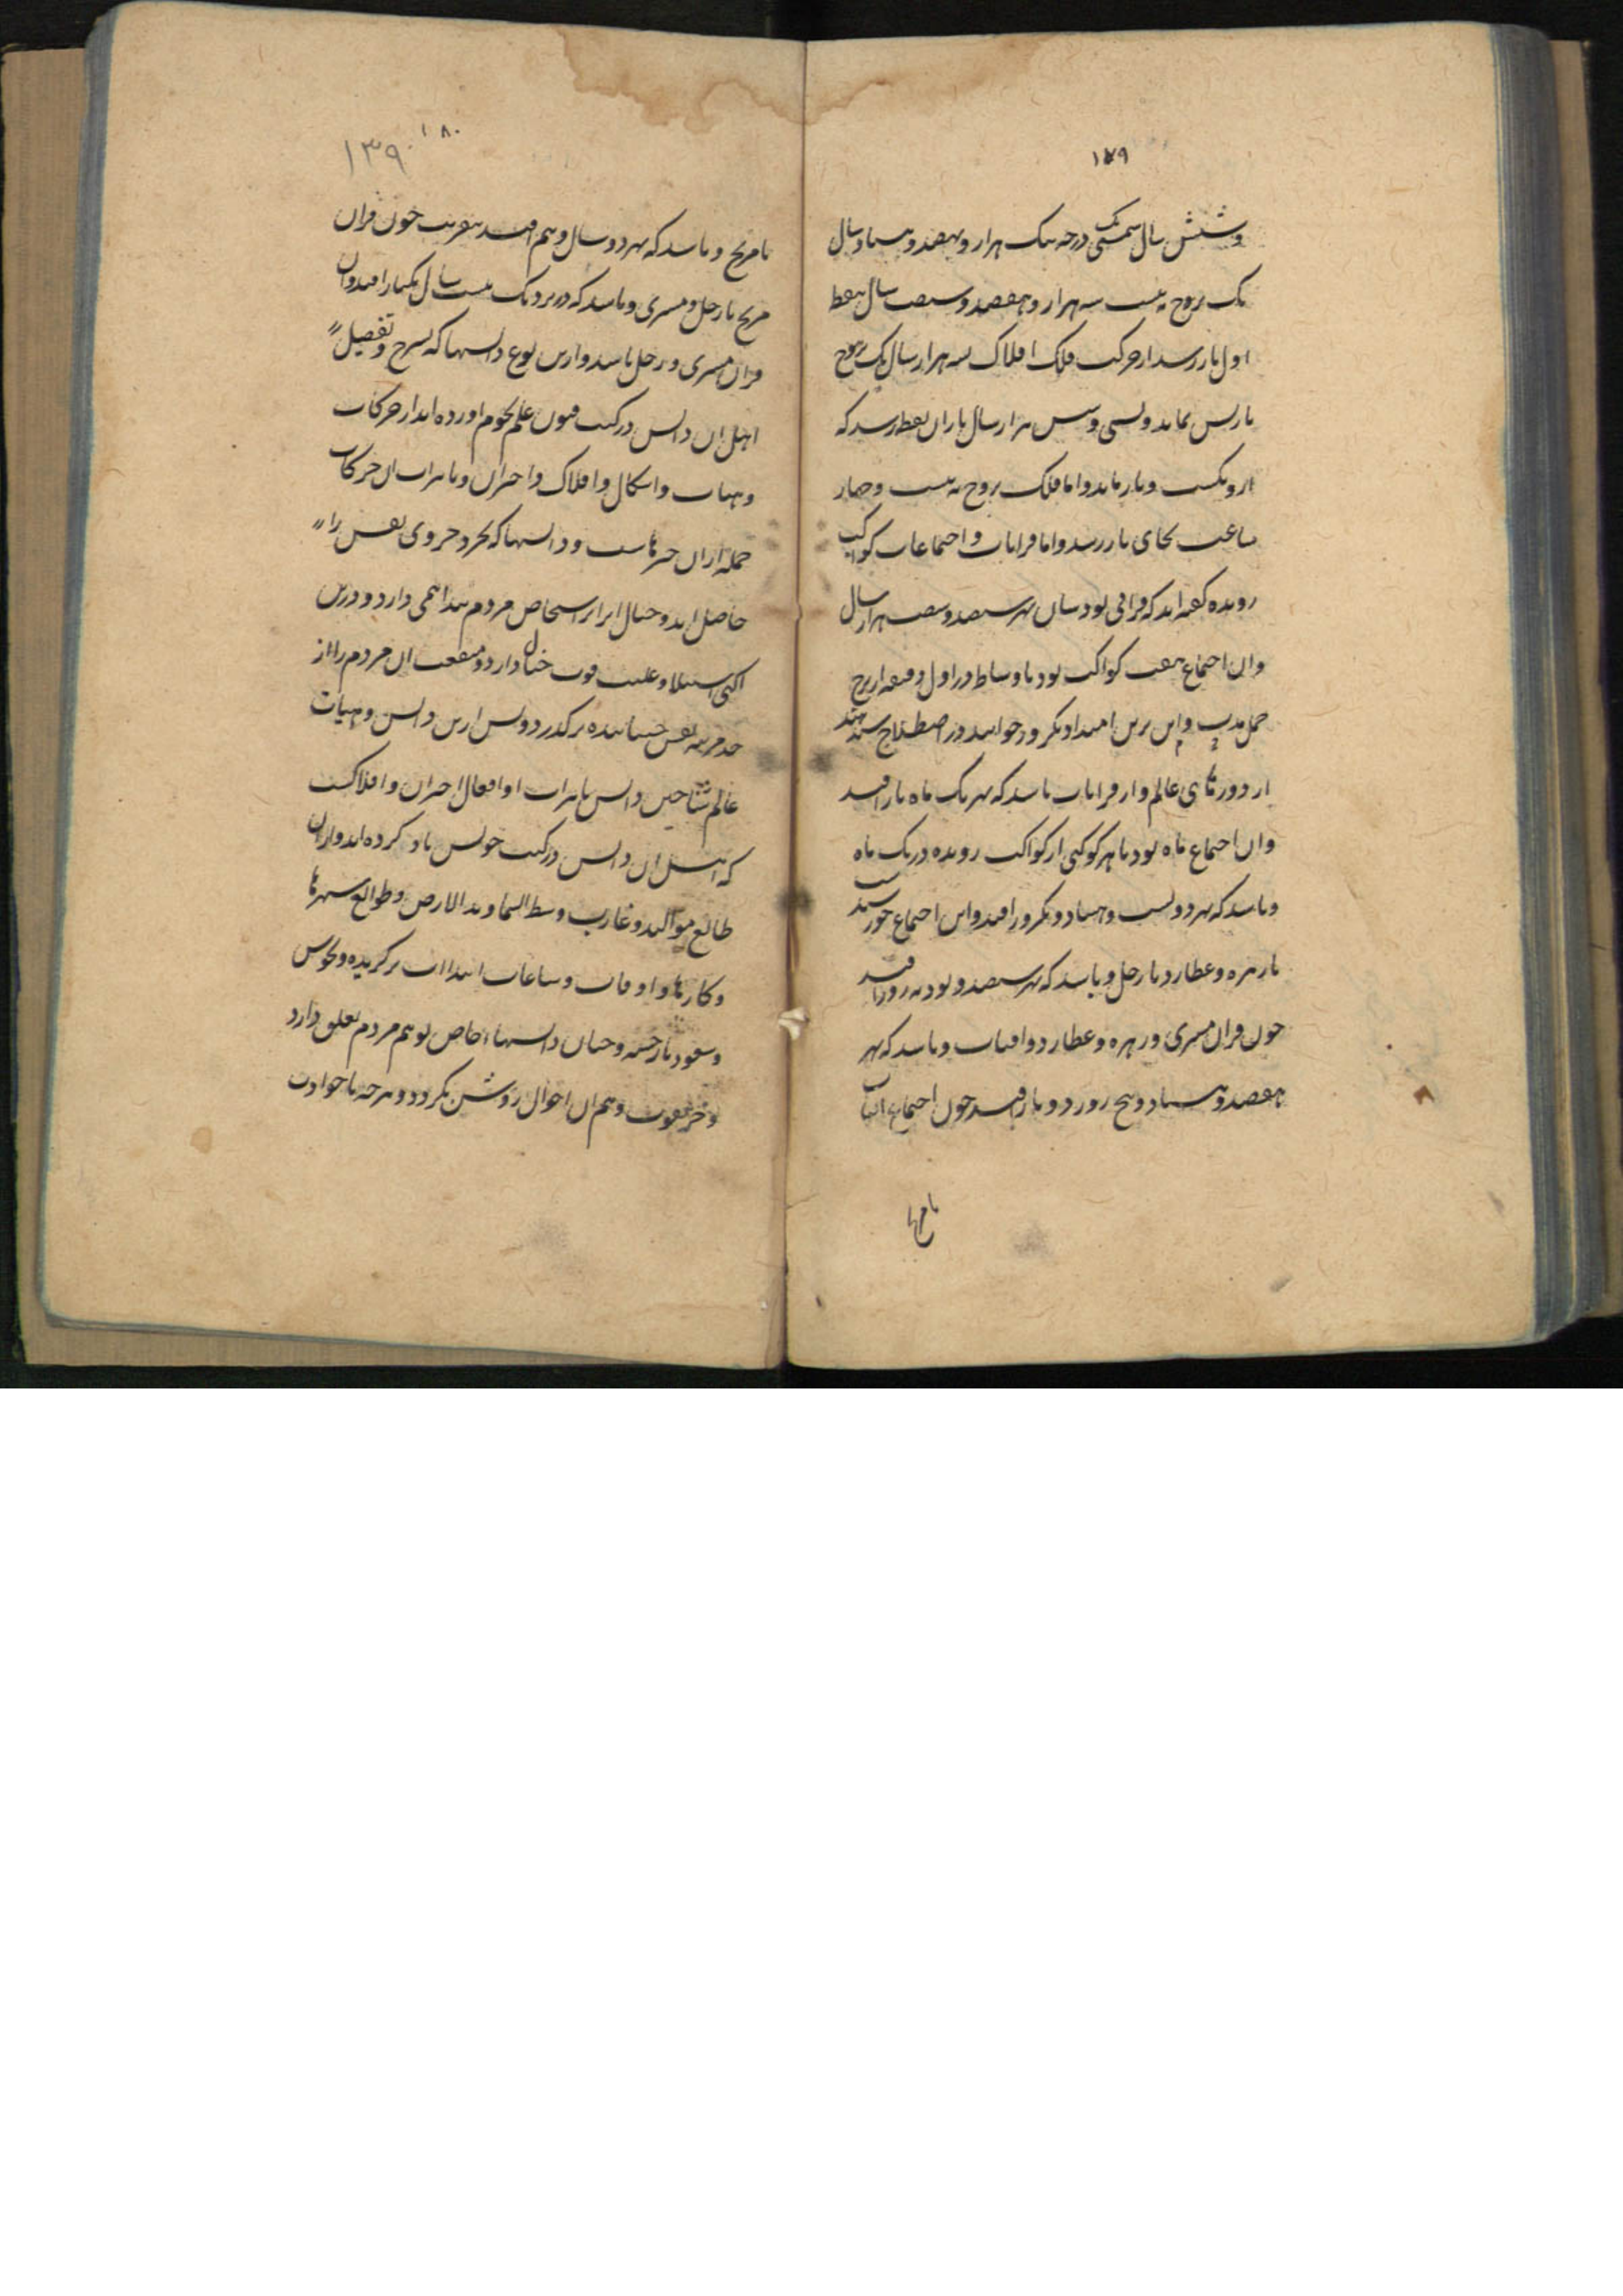 ۱۷۹
وشش سال شمسی درجه یک هزار و هصد و هشتاد سال
یک بروج به بیست سه هزار و هفصد و شصت سال بنقطه
اول باز رسد از حرکت فلک افلاک بسه هزار سال یک بروج
بارس نماید و بسی و شش هزار سال بازان نقطه رسد که
ازو بگشت و باز ماند و اما فلک بروج به بیست و چهار
ساعت بجای باز رسد و اما قرانات و اجتماعات کواکب
رونده گفته اند که قرانی بود سان بهر سیصد و شصت هزار سال
وان اجتماع هفت کواکب بود باوساط در اول دقیقه از برج
حمل و این برین امتداد دیگر و خوانند در اصطلاح
از دورهای عالم و از قرانات باشد که بهر یک ماه باز افتد
وان اجتماع ماه بود با هر کوکبی از کواکب رونده در یک ماه
وباشد که بهر دویست و هشتاد و دیگر روز افتد و این اجتماع خورشید
با زهره و عطارد با زحل و باشد که بهر سیصد و نود نه روز افتد
چون قران مشتری و زهره و عطارد و افتاب و باشد که بهر
هفصد و هشتاد و پنج روز و باز افتد چون اجتماع افتاب
با مریخ
۱۸۰
۱۳۹۰
با مریخ و باشد که بهر دو سال و نیم افتد بتقریب چون قران
مریخ با زحل و مشتری و باشد که در نزدیک بیست سال یکبار افتد وان
قران مشتری و زحل باشد و ازین نوع دانشها که شرح و تفصیل
اهل ان دانش در کتب فنون علم نجوم اورده اند از حرکات
وهیات و اشکال و افلاک و اختران و تاثیرات ان حرکات
جمله ازان خبرهاست و دانشها که بخرد جزوی نفس را
حاصل اید و خیال ابزار اشخاص مردم بیداهمی دارد و درین
اگهی استیلا و غلبت قوت خیال دارد و منفعت ان مردم را از
حد مرتبه نفس حساننده برگذرد و بس ازین دانش و هیات
عالم شناختن دانش تاثیرات و افعال اختران و افلاکست
که اهل ان دانش در کتب خویش یاد کرده اند و ازان
طالع موالید و غارب و وسط السما و وتد الارض و طوالع شهرها
وکارها و اوقات و ساعات ابتداات برگزیده و نحوس
وسعود بازجسته و چنان دانشها خاص بوهم مردم تعلق دارد
و هم ان احوال روشن نگردد و هرچه با حوادث